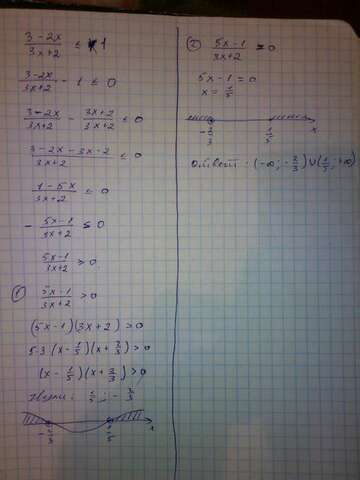 (3-2x)/(3x+2) ≤ 1
(3-2x)/(3x+2) - 1 ≤ 0
(3-2x)/(3x+2) - (3x+2)/(3x+2) ≤ 0
(3-2x-3x-2)/(3x+2) ≤ 0
(1-5x)/(3x+2) ≤ 0
- (5x-1)/(3x+2) ≤ 0
(5x-1)/(3x+2) > 0
① (5x-1)/(3x+2) > 0
(5x-1)(3x+2) > 0
5·3(x-1/5)(x+2/3) > 0
(x-1/5)(x+2/3) > 0
1/5; -2/3
-2/3 1/5 x
② (5x-1)/(3x+2) = 0
5x-1 = 0
x = 1/5
-2/3 1/5 x
Ответ: (-∞; -2/3)∪(1/5; +∞)